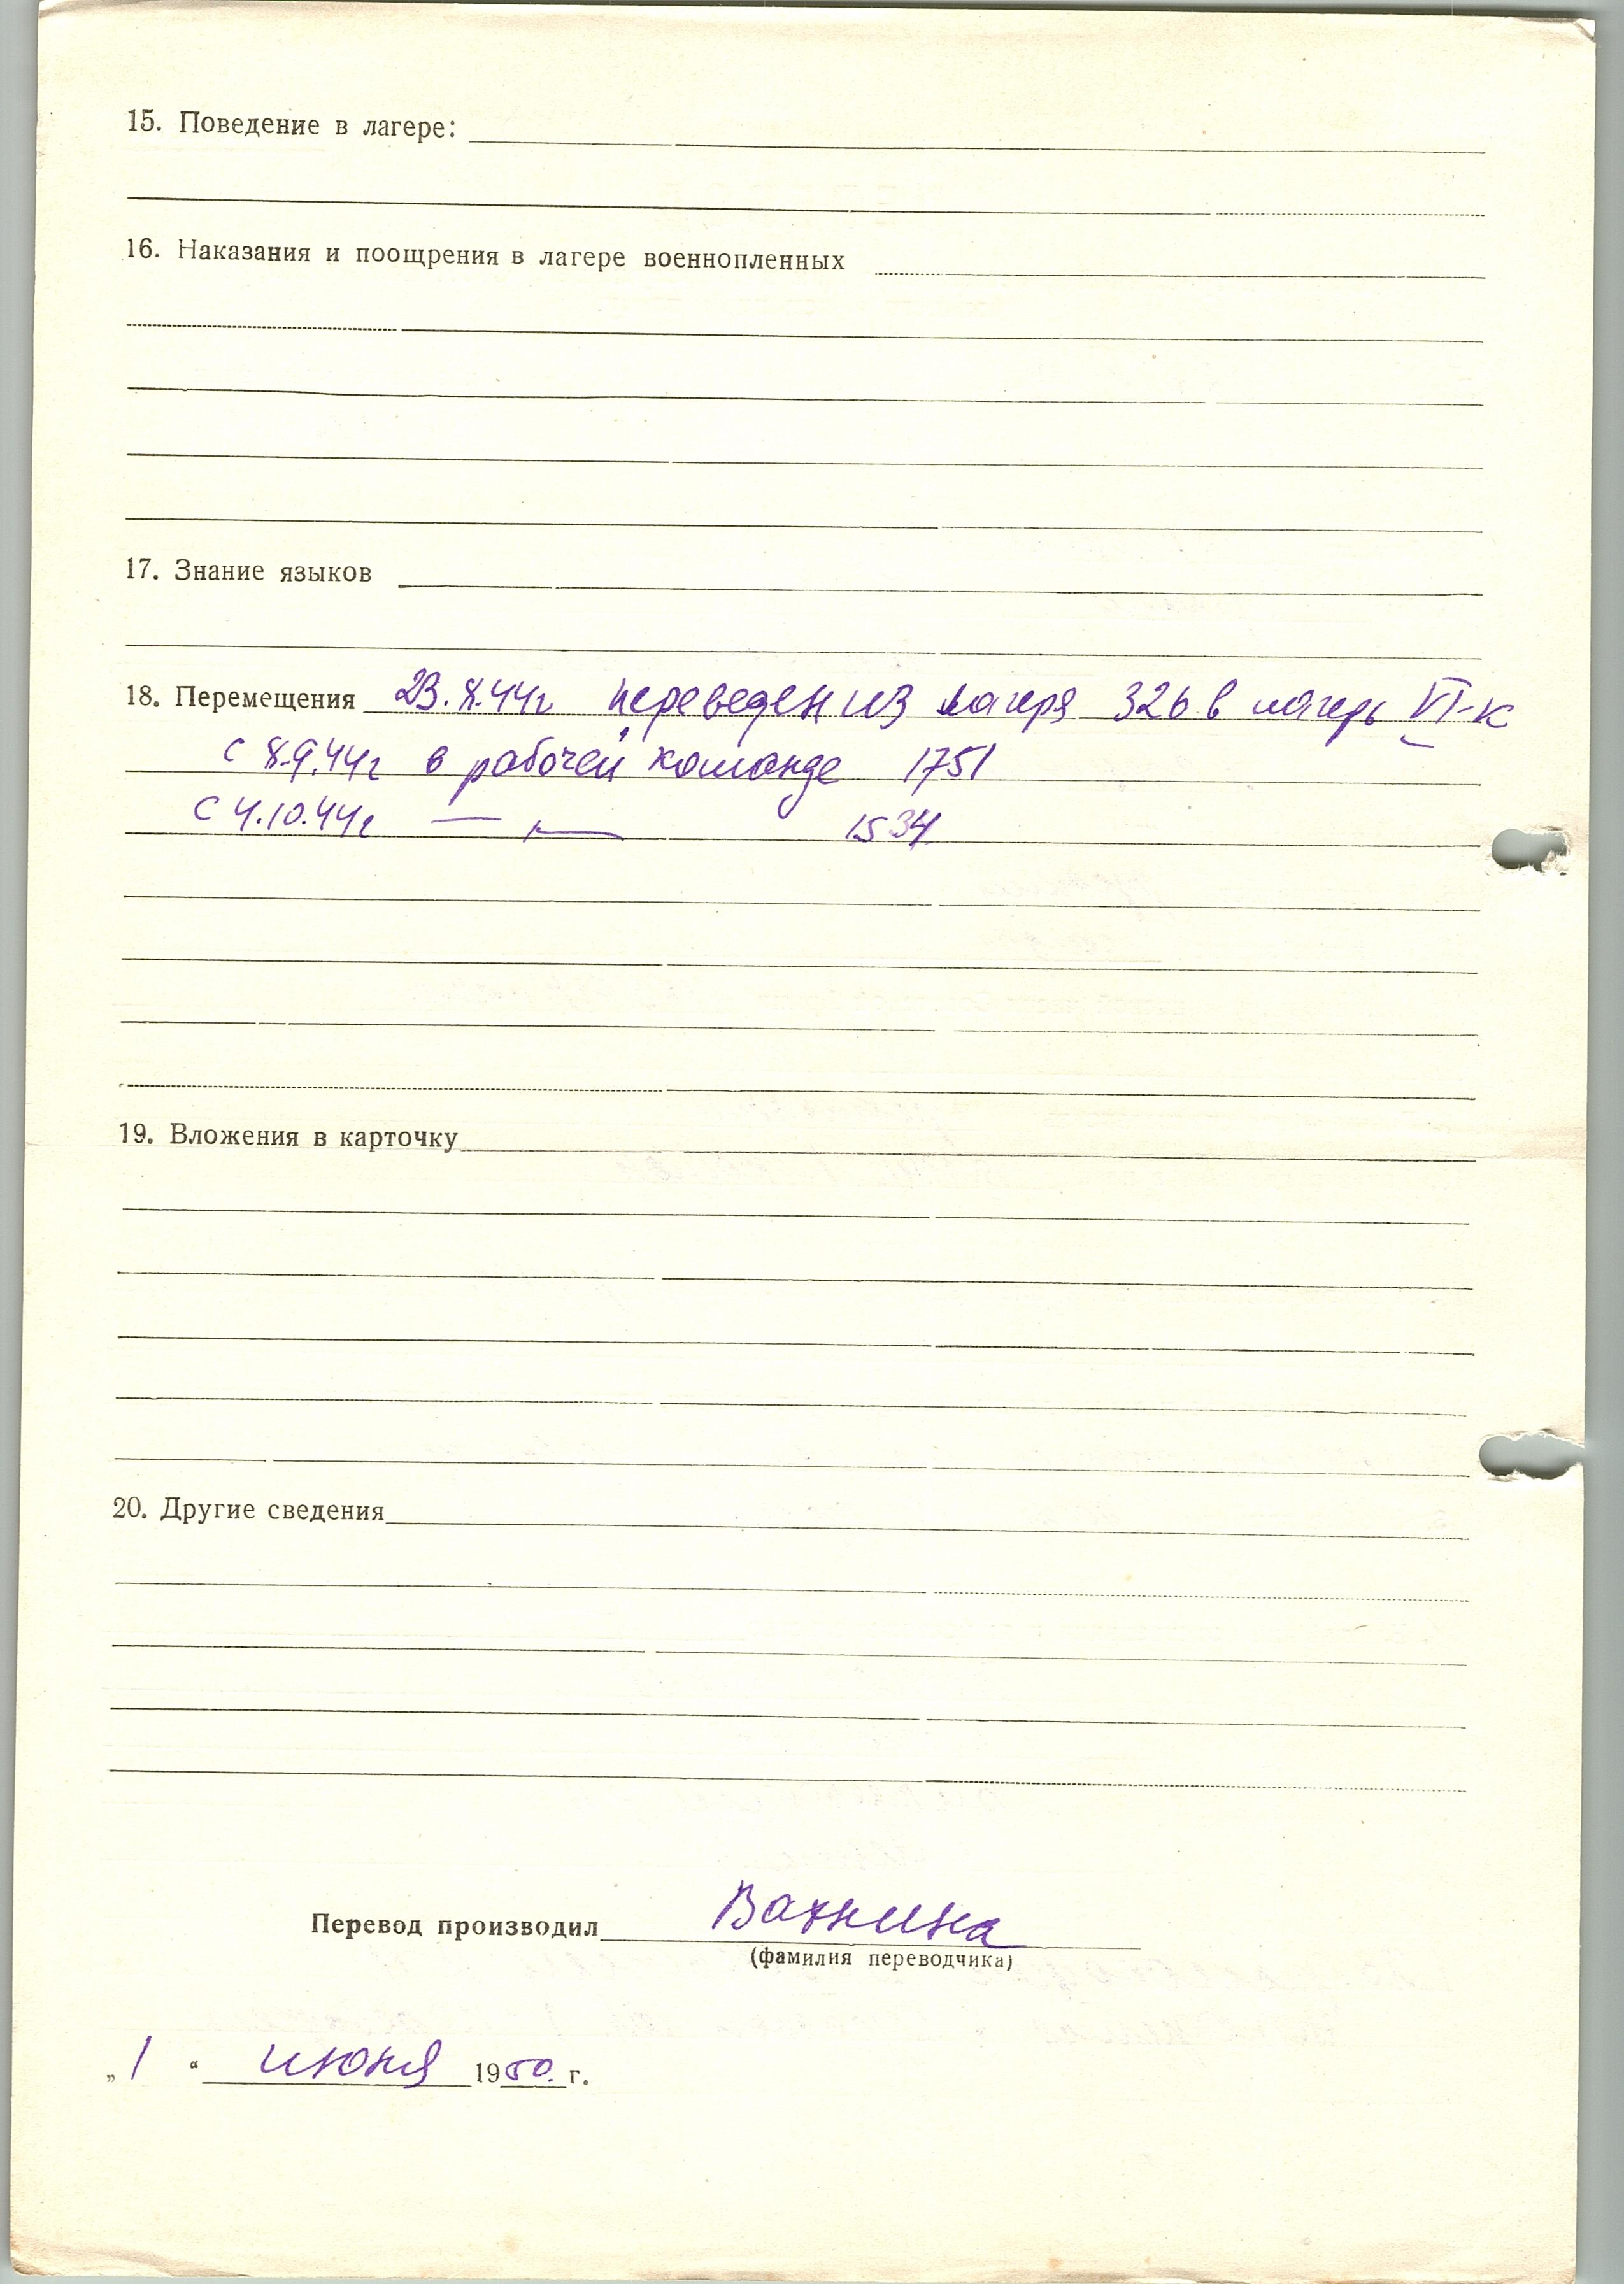 15. Поведение в лагере:
16. Наказания и поощрения в лагере военнопленных
17. Знание языков
18. Перемещения 23.8.44г переведен из лагеря 326 в лагерь VI-к
с 8.9.44г в рабочей команде 1751
с 4.10.44г — — 1534
19. Вложения в карточку
20. Другие сведения
Перевод производил Вахнина
(фамилия переводчика)
„1“ июня 1950. г.